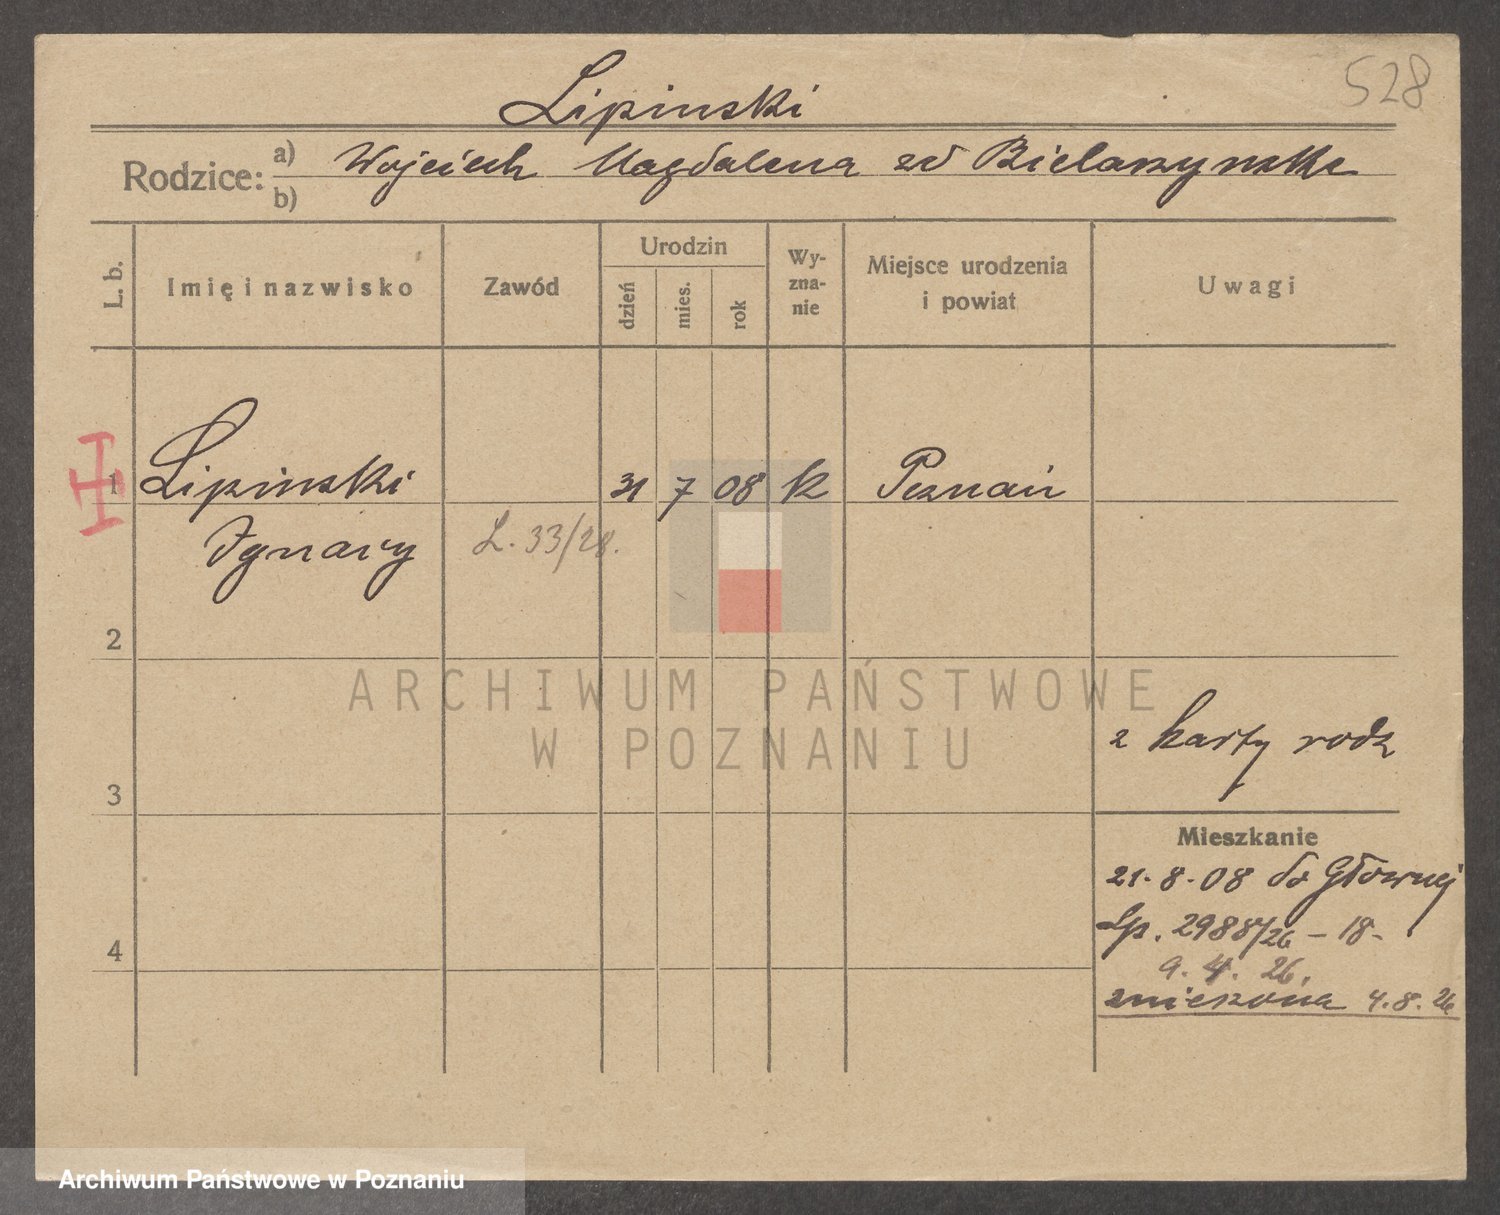 528
Lipinski
Rodzice: a) b) Wojciech Magdalena zd Bielaszynska
L. b.
Imię i nazwisko
Zawód
Urodzin
dzień
mies.
rok
Wy-
zna-
nie
Miejsce urodzenia
i powiat
Uwagi
1 Lipinski 31 7 08 k Poznań
Ignacy L. 33/28.
2
ARCHIWUM PAŃSTWOWE
W POZNANIU
z karty rodz
3
Mieszkanie
21.8.08 do Głównej
Lp. 2988/26 - 18 -
4
9. 4. 26.
4.8.26
Archiwum Państwowe w Poznaniu